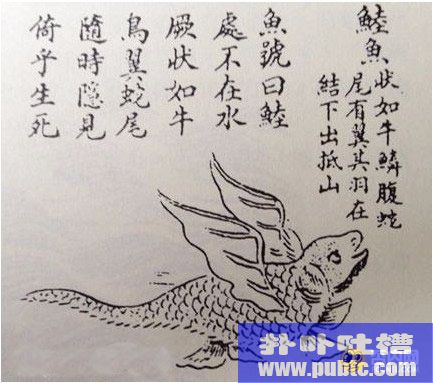 鯥魚
狀如牛鱗腹蛇
尾有翼其羽在
結下出抵山
魚號曰鯥
處不在水
厥狀如牛
鳥翼蛇尾
隨時隐見
倚乎生死
扑卟吐槽
www.pubic.com